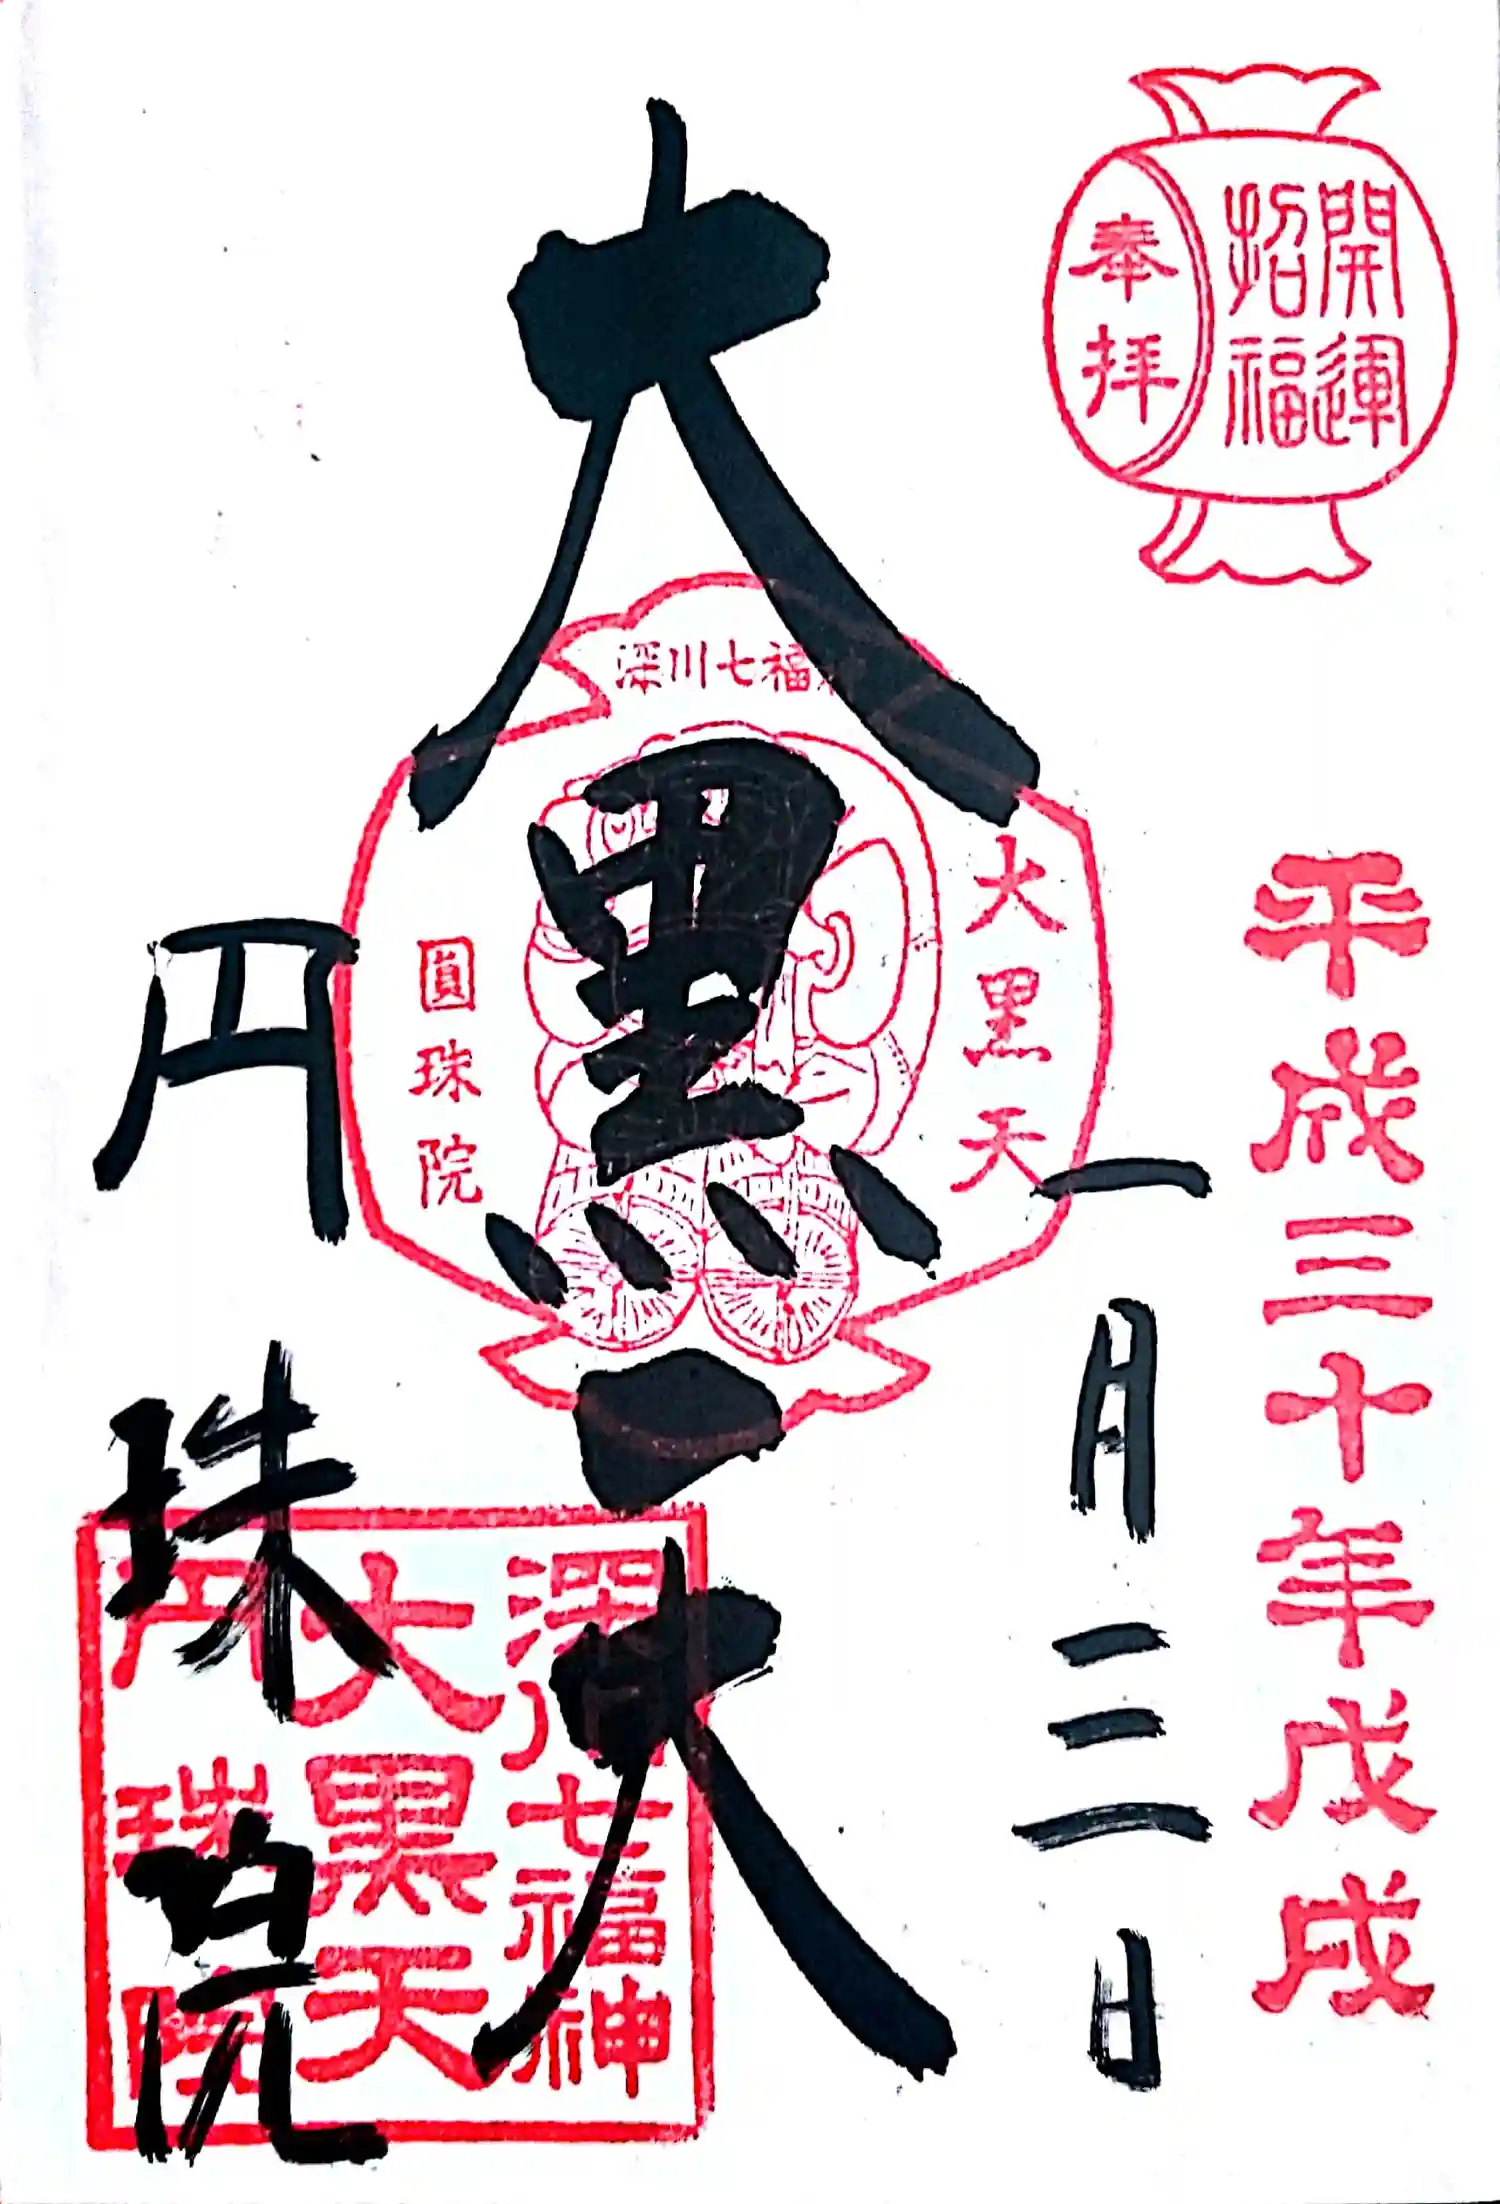 開運
招福
奉拝
平成三十年戊戌
一月三日
深川七福
大黒天
圓珠院
大黒天
円珠院
深川七福神
大黒天
円珠院